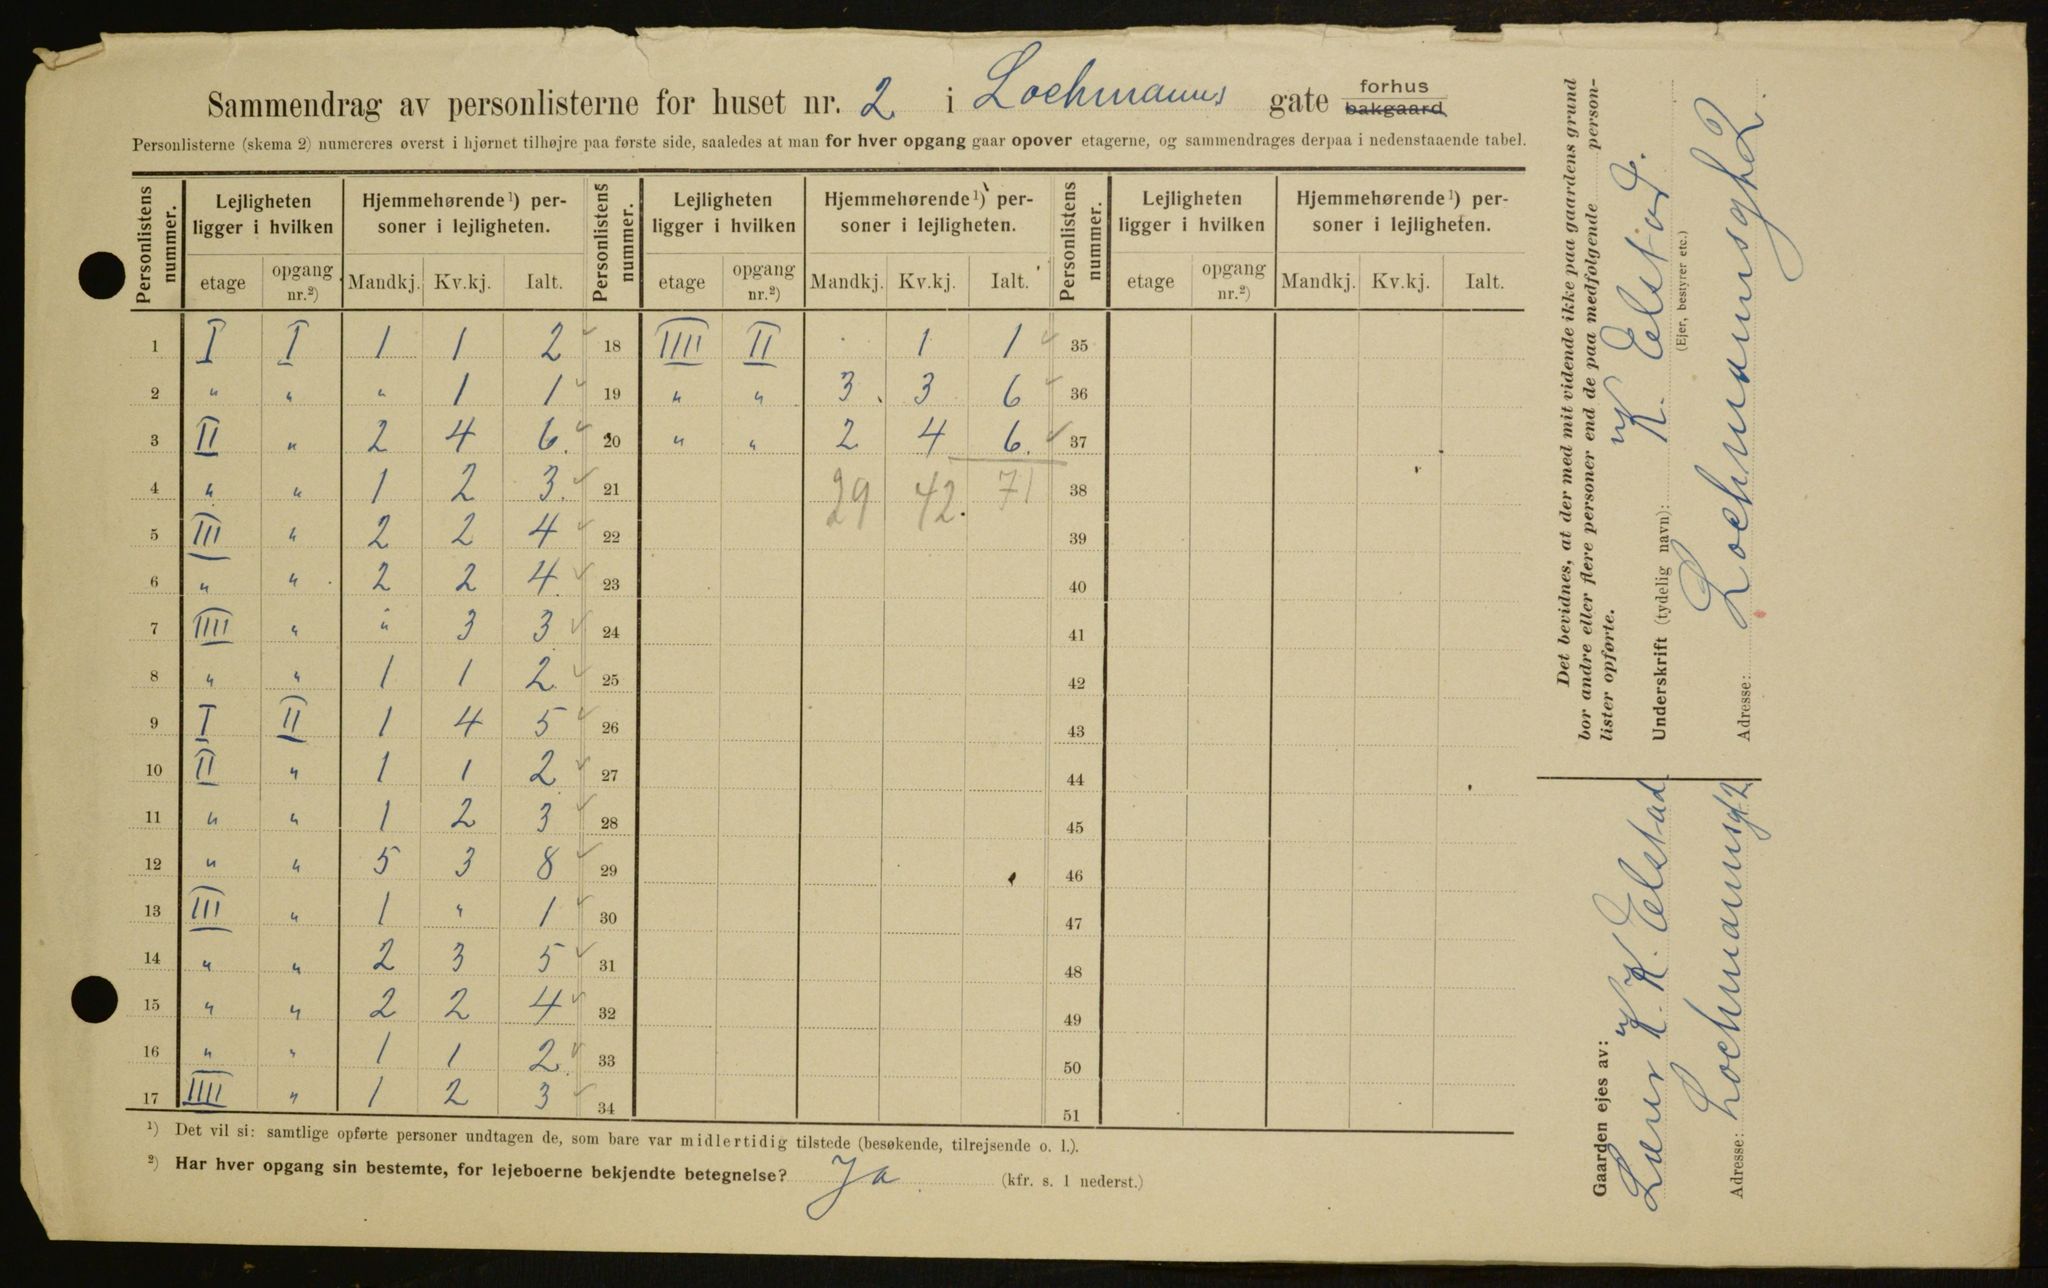 Sammendrag av personlisterne for huset nr. 2 i Lochmanns gate forhus bakgaard
Personlisterne (skema 2) numereres øverst i hjørnet tilhøjre paa første side, saaledes at man for hver opgang gaar opover etagerne, og sammendrages derpaa i nedenstaaende tabel.
Personlistens nummer. Lejligheten ligger i hvilken Hjemmehørende¹) personer i lejligheten. Personlistens nummer. Lejligheten ligger i hvilken Hjemmehørende¹) personer i lejligheten. Personlistens nummer. Lejligheten ligger i hvilken Hjemmehørende¹) personer i lejligheten.
etage opgang nr.²) Mandkj. Kv.kj. Ialt. etage opgang nr.²) Mandkj. Kv.kj. Ialt. etage opgang nr.²) Mandkj. Kv.kj. Ialt.
1 I I 1 1 2 18 IIII II 1 1 35
2 " " " 1 1 19 " " 3 3 6 36
3 II " 2 4 6. 20 " " 2 4 6. 37
4 " " 1 2 3. 21 29 42. 71 38
5 III " 2 2 4 22 39
6 " " 2 2 4. 23 40
7 IIII " " 3 3 24 41
8 " " 1 1 2. 25 42
9 I II 1 4 5 26 43
10 II " 1 1 2 27 44
11 " " 1 2 3 28 45
12 " " 5 3 8 29 46
13 III " 1 " 1 30 47
14 " " 2 3 5 31 48
15 " " 2 2 4 32 49
16 " " 1 1 2. 33 50
17 IIII " 1 2 3 34 51
¹) Det vil si: samtlige opførte personer undtagen de, som bare var midlertidig tilstede (besøkende, tilrejsende o. l.).
²) Har hver opgang sin bestemte, for lejeboerne bekjendte betegnelse? Ja (kfr. s. 1 nederst.)
Det bevidnes, at der med mit vidende ikke paa gaardens grund
bor andre eller flere personer end de paa medfølgende person-
lister opførte.
Underskrift (tydelig navn): K. Elstad.
(Ejer, bestyrer etc.)
Adresse: Lochmannsgt 2.
Gaarden ejes av:
K. Elstad
Adresse: Lochmannsgt 2